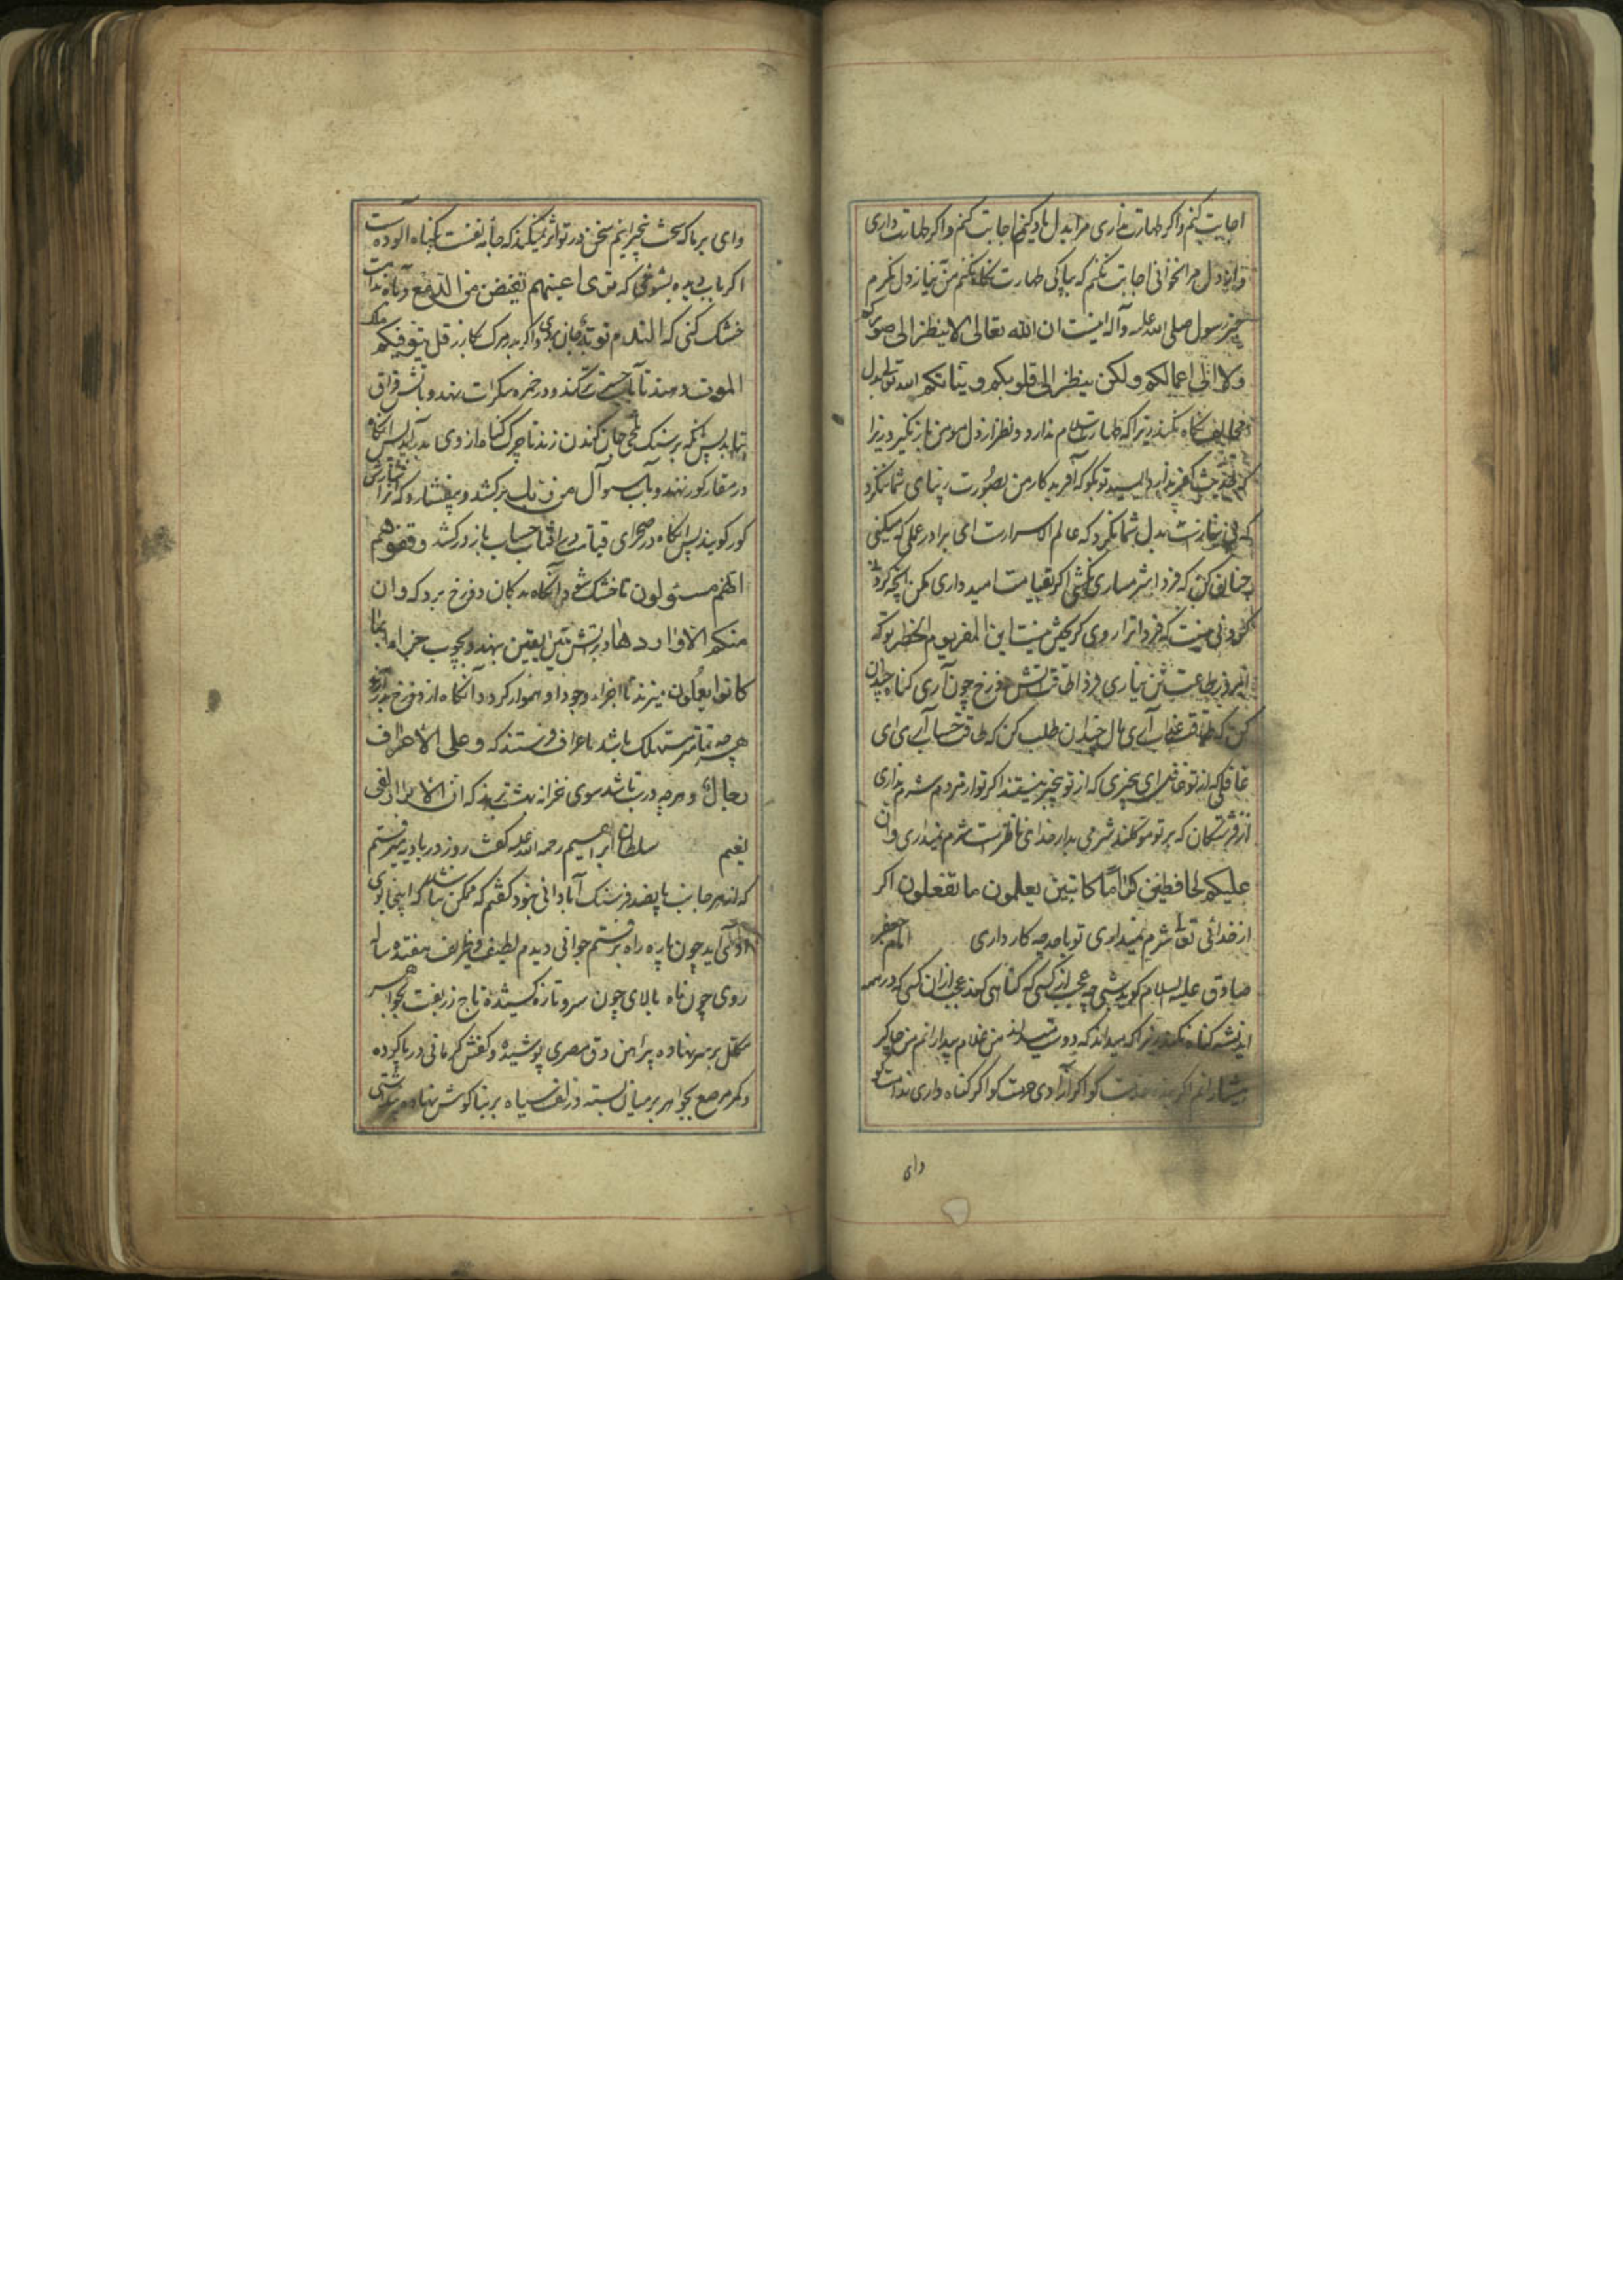 اجابت کنم واکر طهارت نداری مرا بدل یاد کنی اجابت کنم واکر طهارت داری
دل مرا نخوانی اجابت نکنم که بپاکی طهارت نکاه نکنم من نیاز دل نکرم
خبر رسول صلی الله علیه وآله اینست ان الله تعالی لا ینظر الی صورکم
ولا الی اعمالکم ولکن ینظر الی قلوبکم ونیاتکم الله تعالی بدل
نکاه نکند زیرا که طهارت اسلام ندارد ونظر از دل مومن باز نکیرد زیرا
که ندارد تو کوکه آفریدکار من بصورت زیبای شما ننکرد
که بدل شما نکرد که عالم الاسرارست ای برادر عملی که میکنی
چنان کن که فردا شرمساری نکشی اکر بقیامت امید داری مکن آنچه کرده
که فردا ترا روی کریختن نیست این المفر یوم الخطر توکه
امروز طاعت نیاری فردا طاقت آتش دوزخ چون آری کناه چندان
کن که طاقت عذاب آری مال چندان طلب کن که طاقت حساب آری ای
غافل که از تو غافل ای بیخبری که از تو بیخبر نیستند اکر تو از مردم شرم نداری
از فرشتکان که بر تو موکلند شرمی بدار خدای ناظرست شرم نمیداری وان
علیکم لحافظین کراما کاتبین یعلمون ما تفعلون اکر
از خدائی تعالی شرم نمیداری تو با خود چه کار داری امام جعفر
صادق علیه السلام کوید عجب از کسی که کناهی کند عجب از آن کسی که در همه
اندیشه کناه نکند زیرا که میداند که دوست میداند من غلام بیدارانم من چاکر
هشیارانم اکر کو اکر آزادی خدمت کو اکر کناه داری ندامت کو
وای
وای بر ما که سخت بیخبرانیم سخن در تو اثر نمیکند که جامه نفست بکناه آلوده است
اکر بآب دیده بشوئی که تری اعینهم تفیض من الدمع وبآه ندامت
خشک کنی که الندم توبة جان بری واکر نه مرک کازر قل یتوفیکم ملک
الموت دهند تا بآب حسرت تر کند ودر خمره سکرات نهد وبآتش فراق
بتابد پس آنکه بر سنک تلخی جان کندن زند تا چرک کناه از وی بدر آید پس آنکاه
در مقار کور نهند وبآب سؤال من ربک برکشد وبیفشارد که آنرا فشارش
کور کویند پس آنکاه در صحرای قیامت در آفتاب حساب باز درکشد وقفوهم
انهم مسئولون تا خشک شود آنکاه بدکان دوزخ برد که وان
منکم الا واردها در آتش یقین نهد وبچوب جزاء بما
کانوا یعملون میزند تا اجزاء وجود او هموار کردد آنکاه از دوزخ بدر آرند
هرچه نماند مستهلک باشد باعراف فرستند که وعلی الاعراف
رجال وهرچه درست باشد سوی خزانه بهشت برند که ان الابرار لفی
نعیم سلطان ابراهیم رحمة الله علیه کفت روزی در بادیه میرفتم
که از هر جانب پانصد فرسنک آبادانی نبود کفتم که ممکن باشد که اینجا بوی
آدمی آید چون پاره راه برفتم جوانی دیدم لطیف وظریف هفده ساله
روی چون ماه بالای چون سرو تازه کشیده تاج زربفت بجواهر
مکلل بر سر نهاده پیراهن دق مصری پوشیده وکفش کرمانی در پا کرده
وکمر مرصع بجواهر بر میان بسته زلف سیاه بر بناکوش نهاده